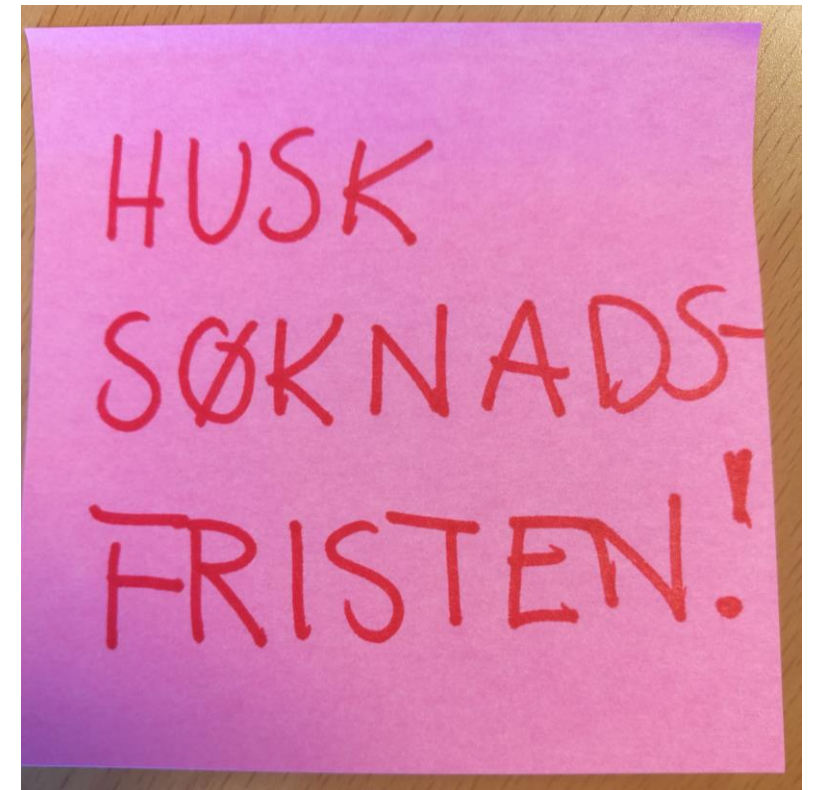 HUSK
SØKNADS-
FRISTEN!